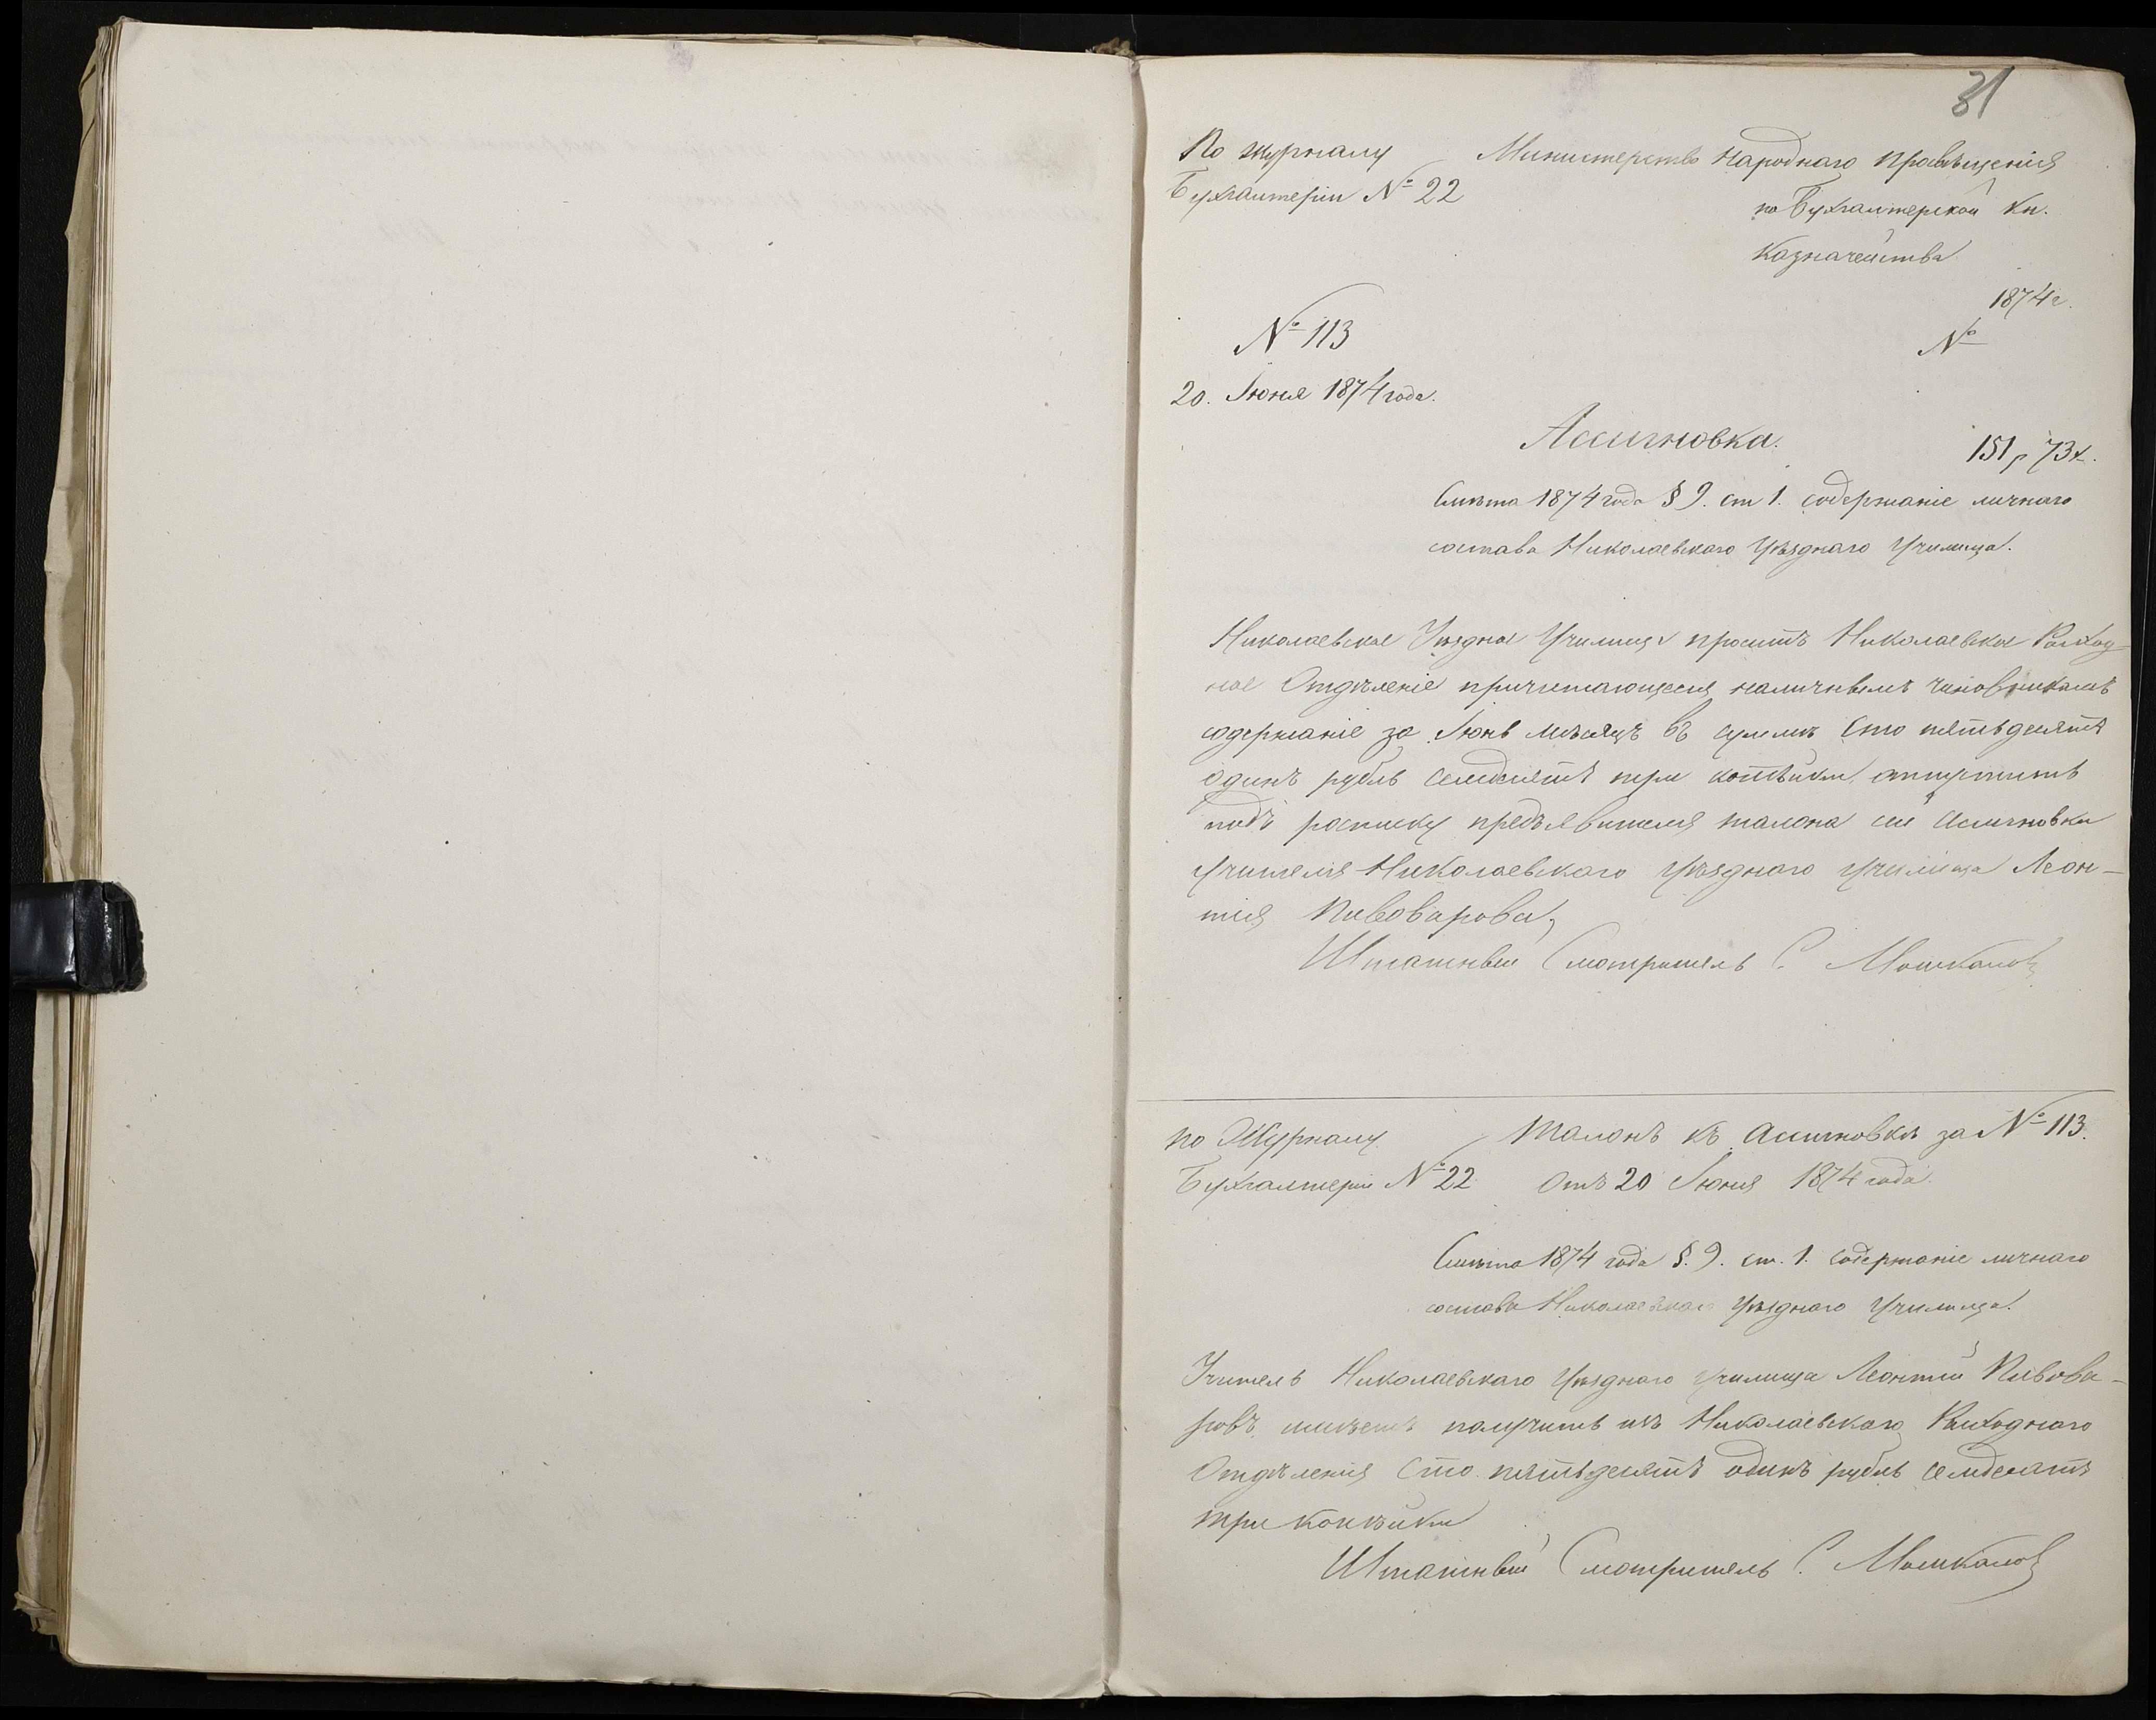 31
По журналу
Бухгалтеріи № 22
Министерство Народнаго просвѣщенія
по Бухгалтерской Кн.
Казначейства
1874 г.
№
№ 113
20. Іюня 1874 года.
Ассигновка.
151 р 73 к.
Смѣта 1874 года § 9. ст 1. содержаніе личнаго
состава Николаевскаго Уѣзднаго Училища.
Николаевское Уѣздное Училище проситъ Николаевское Расход-
ное Отдѣленіе причитающееся наличнымъ чиновникамъ
содержаніе за Іюнь мѣсяцъ въ суммѣ Сто пятьдесятъ
одинъ рубль семдесятъ три копѣйки, отпустить
подъ росписку предъявителя талона сей Ассигновки
учителя Николаевскаго Уѣзднаго Училища Леон-
тія Пивоварова,
Штатный Смотритель С. Мошкановъ
по Журналу
Бухгалтеріи № 22
Талонъ къ Ассигновкѣ за № 113.
Отъ 20 Іюня 1874 года
Смѣта 1874 года §. 9. ст. 1. содержаніе личнаго
состава Николаевскаго Уѣзднаго Училища.
Учитель Николаевскаго Уѣзднаго училища Леонтій Пивова-
ровъ имѣетъ получить изъ Николаевскаго Расходнаго
Отдѣленія Сто пятьдесятъ одинъ рубль семдесятъ
три копѣйки
Штатный Смотритель С. Мошкановъ